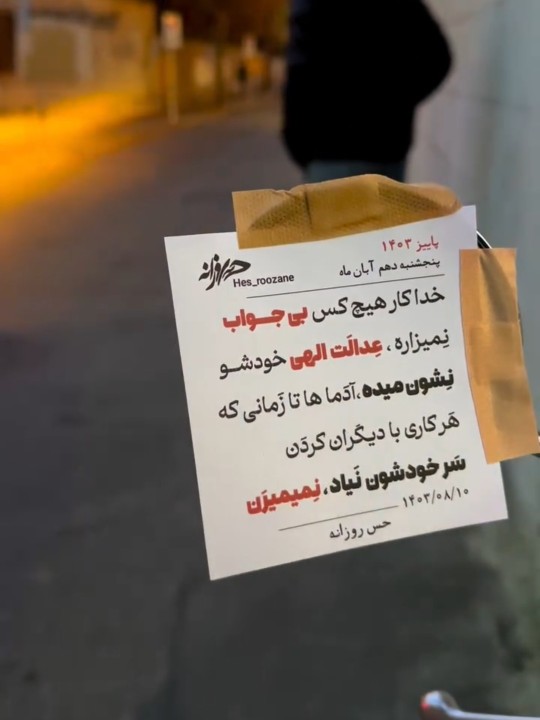 پاییز ۱۴۰۳
پنجشنبه دهم آبان ماه
حس روزانه
Hes_roozane
خدا کار هیچ کس بی جـواب
نِمیزاره ، عِدالَت الهی خودشـو
نِشون میده،آدَما ها تا زَمانی که
هَر کاری با دیگران کردَن
سَر خودشون نَیاد، نِمیمیرَن
۱۴۰۳/۰۸/۱۰
حس روزانه